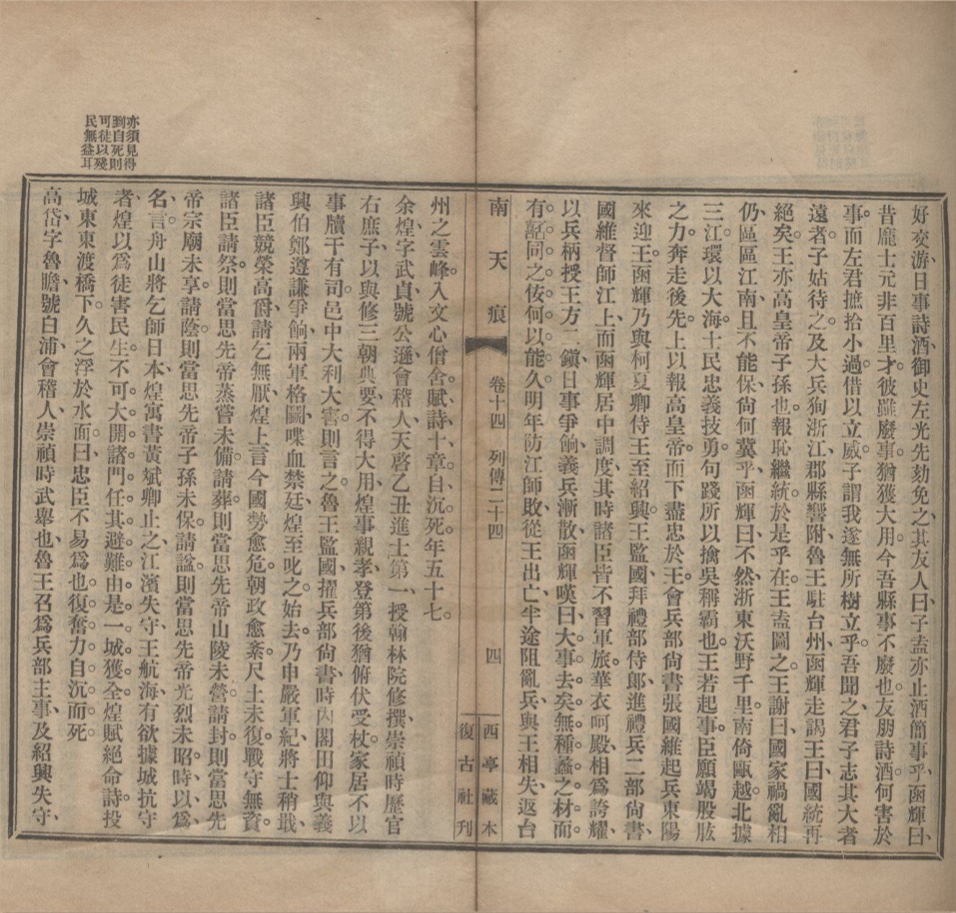 好交游日事詩酒御史左光先劾免之其友人曰子盍亦止酒簡事乎函輝曰
昔龐士元非百里才彼雖廢事猶獲大用今吾縣事不廢也友朋詩酒何害於
事而左君摭拾小過借以立威子謂我遂無所樹立乎吾聞之君子志其大者
遠者子姑待之及大兵狥浙江郡縣響附魯王駐台州函輝走謁王曰國統再
絕矣王亦高皇帝子孫也報恥繼統於是乎在王盍圖之王謝曰國家禍亂相
仍區區江南且不能保尙何冀乎函輝曰不然浙東沃野千里南倚甌越北據
三江環以大海士民忠義技勇句踐所以擒吳稱霸也王若起事臣願竭股肱
之力奔走後先上以報高皇帝而下盡忠於王會兵部尙書張國維起兵東陽
來迎王函輝乃與柯夏卿侍王至紹興王監國拜禮部侍郞進禮兵二部尙書
國維督師江上而函輝居中調度其時諸臣皆不習軍旅華衣呵殿相爲誇耀
以兵柄授王方二鎭日事爭餉義兵漸散函輝嘆曰大事去矣無種蠡之材而
有噽同之佞何以能久明年防江師敗從王出亡半途阻亂兵與王相失返台
南天痕 卷十四 列傳二十四 四 西亭藏本 復古社刊
州之雲峰入文心僧舍賦詩十章自沉死年五十七
余煌字武貞號公遜會稽人天啓乙丑進士第一授翰林院修撰崇禎時歷官
右庶子以與修三朝典要不得大用煌事親孝登第後猶俯伏受杖家居不以
事牘干有司邑中大利大害則言之魯王監國擢兵部尙書時內閣田仰與義
興伯鄭遵謙爭餉兩軍格鬭喋血禁廷煌至叱之始去乃申嚴軍紀將士稍戢
諸臣競榮高爵請乞無厭煌上言今國勢愈危朝政愈紊尺土未復戰守無資
諸臣請祭則當思先帝蒸嘗未備請葬則當思先帝山陵未營請封則當思先
帝宗廟未享請蔭則當思先帝子孫未保請諡則當思先帝光烈未昭時以爲
名言舟山將乞師日本煌寓書黃斌卿止之江濱失守王航海有欲據城抗守
者煌以爲徒害民生不可大開諸門任其避難由是一城獲全煌賦絕命詩投
城東東渡橋下久之浮於水面曰忠臣不易爲也復奮力自沉而死
高岱字魯瞻號白浦會稽人崇禎時武舉也魯王召爲兵部主事及紹興失守
亦須見得
到自死則
可徒以殘
民無益耳